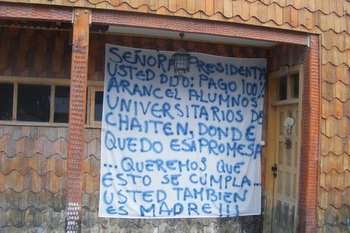 SEÑORA PRESIDENTA
USTED DIJO: PAGO 100%
ARANCEL ALUMNOS
UNIVERSITARIOS DE
CHAITEN, DONDE
QUEDO ESA PROMESA
...QUEREMOS QUE
ESTO SE CUMPLA...
USTED TAMBIEN
ES MADRE!!!